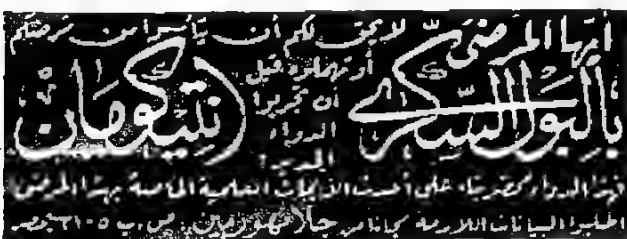 أيها المرضى
بالبول السكري
لا يحق لكم أن تيأسوا من مرضكم
أو تهملوه قبل
أن تجربوا
الدواء
الجديد
انتيكومان
فهذا الدواء محضر بناء على أحدث الأبحاث العلمية الخاصة بهذا المرض
اطلبوا البيانات اللازمة مجانا من جالانهورمين ص.ب ٢١٠٥ بمصر